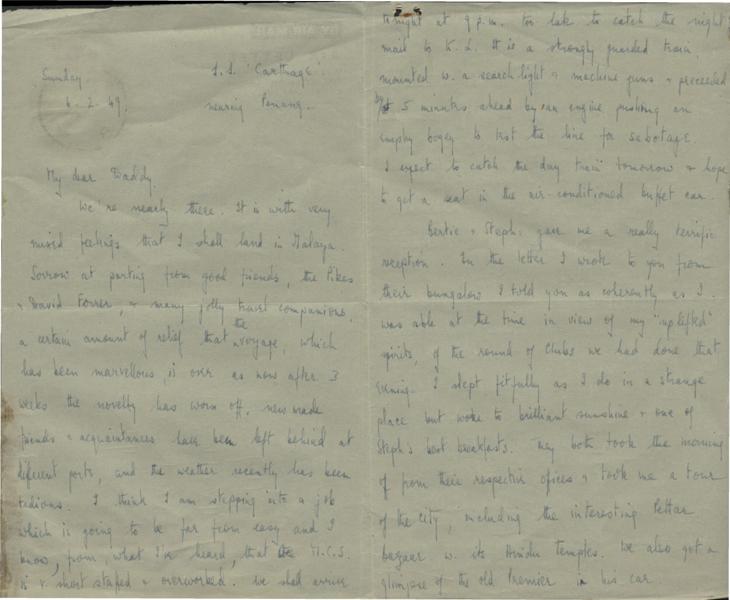 Sunday
6.2.49.
S.S. 'Carthage'.
nearing Penang.
My dear Daddy,
We're nearly there. It is with very
mixed feelings that I shall land in Malaya.
Sorrow at parting from good friends, the Pikes
& David Forrer, & many jolly travel companions,
a certain amount of relief that the voyage, which
has been marvellous, is over as now after 3
weeks the novelty has worn off, new made
friends & acquaintances have been left behind at
different ports, and the weather recently has been
tedious. I think I am stepping into a job
which is going to be far from easy and I
know, from what I've heard, that the M.C.S.
is & short staffed & overworked. We shall arrive
tonight at 9 p.m. too late to catch the night
mail to K.L. It is a strongly guarded train,
mounted w. a searchlight & machine guns & preceeded
5 minutes ahead by an engine pushing an
empty bogey to test the line for sabotage.
I expect to catch the day train tomorrow & hope
to get a seat in the air-conditioned buffet car.
Bertie & Steph: gave me a really terrific
reception. In the letter I wrote to you from
their bungalow I told you as coherently as I
was able at the time in view of my "uplifted"
spirits, of the round of Clubs we had done that
evening. I slept fitfully as I do in a strange
place but woke to brilliant sunshine & one of
Steph's best breakfasts. They both took the morning
off from their respective offices & took me a tour
of the City, including the interesting Pettah
bazaar w. its Hindu temples. We also got a
glimpse of the old Premier in his car.